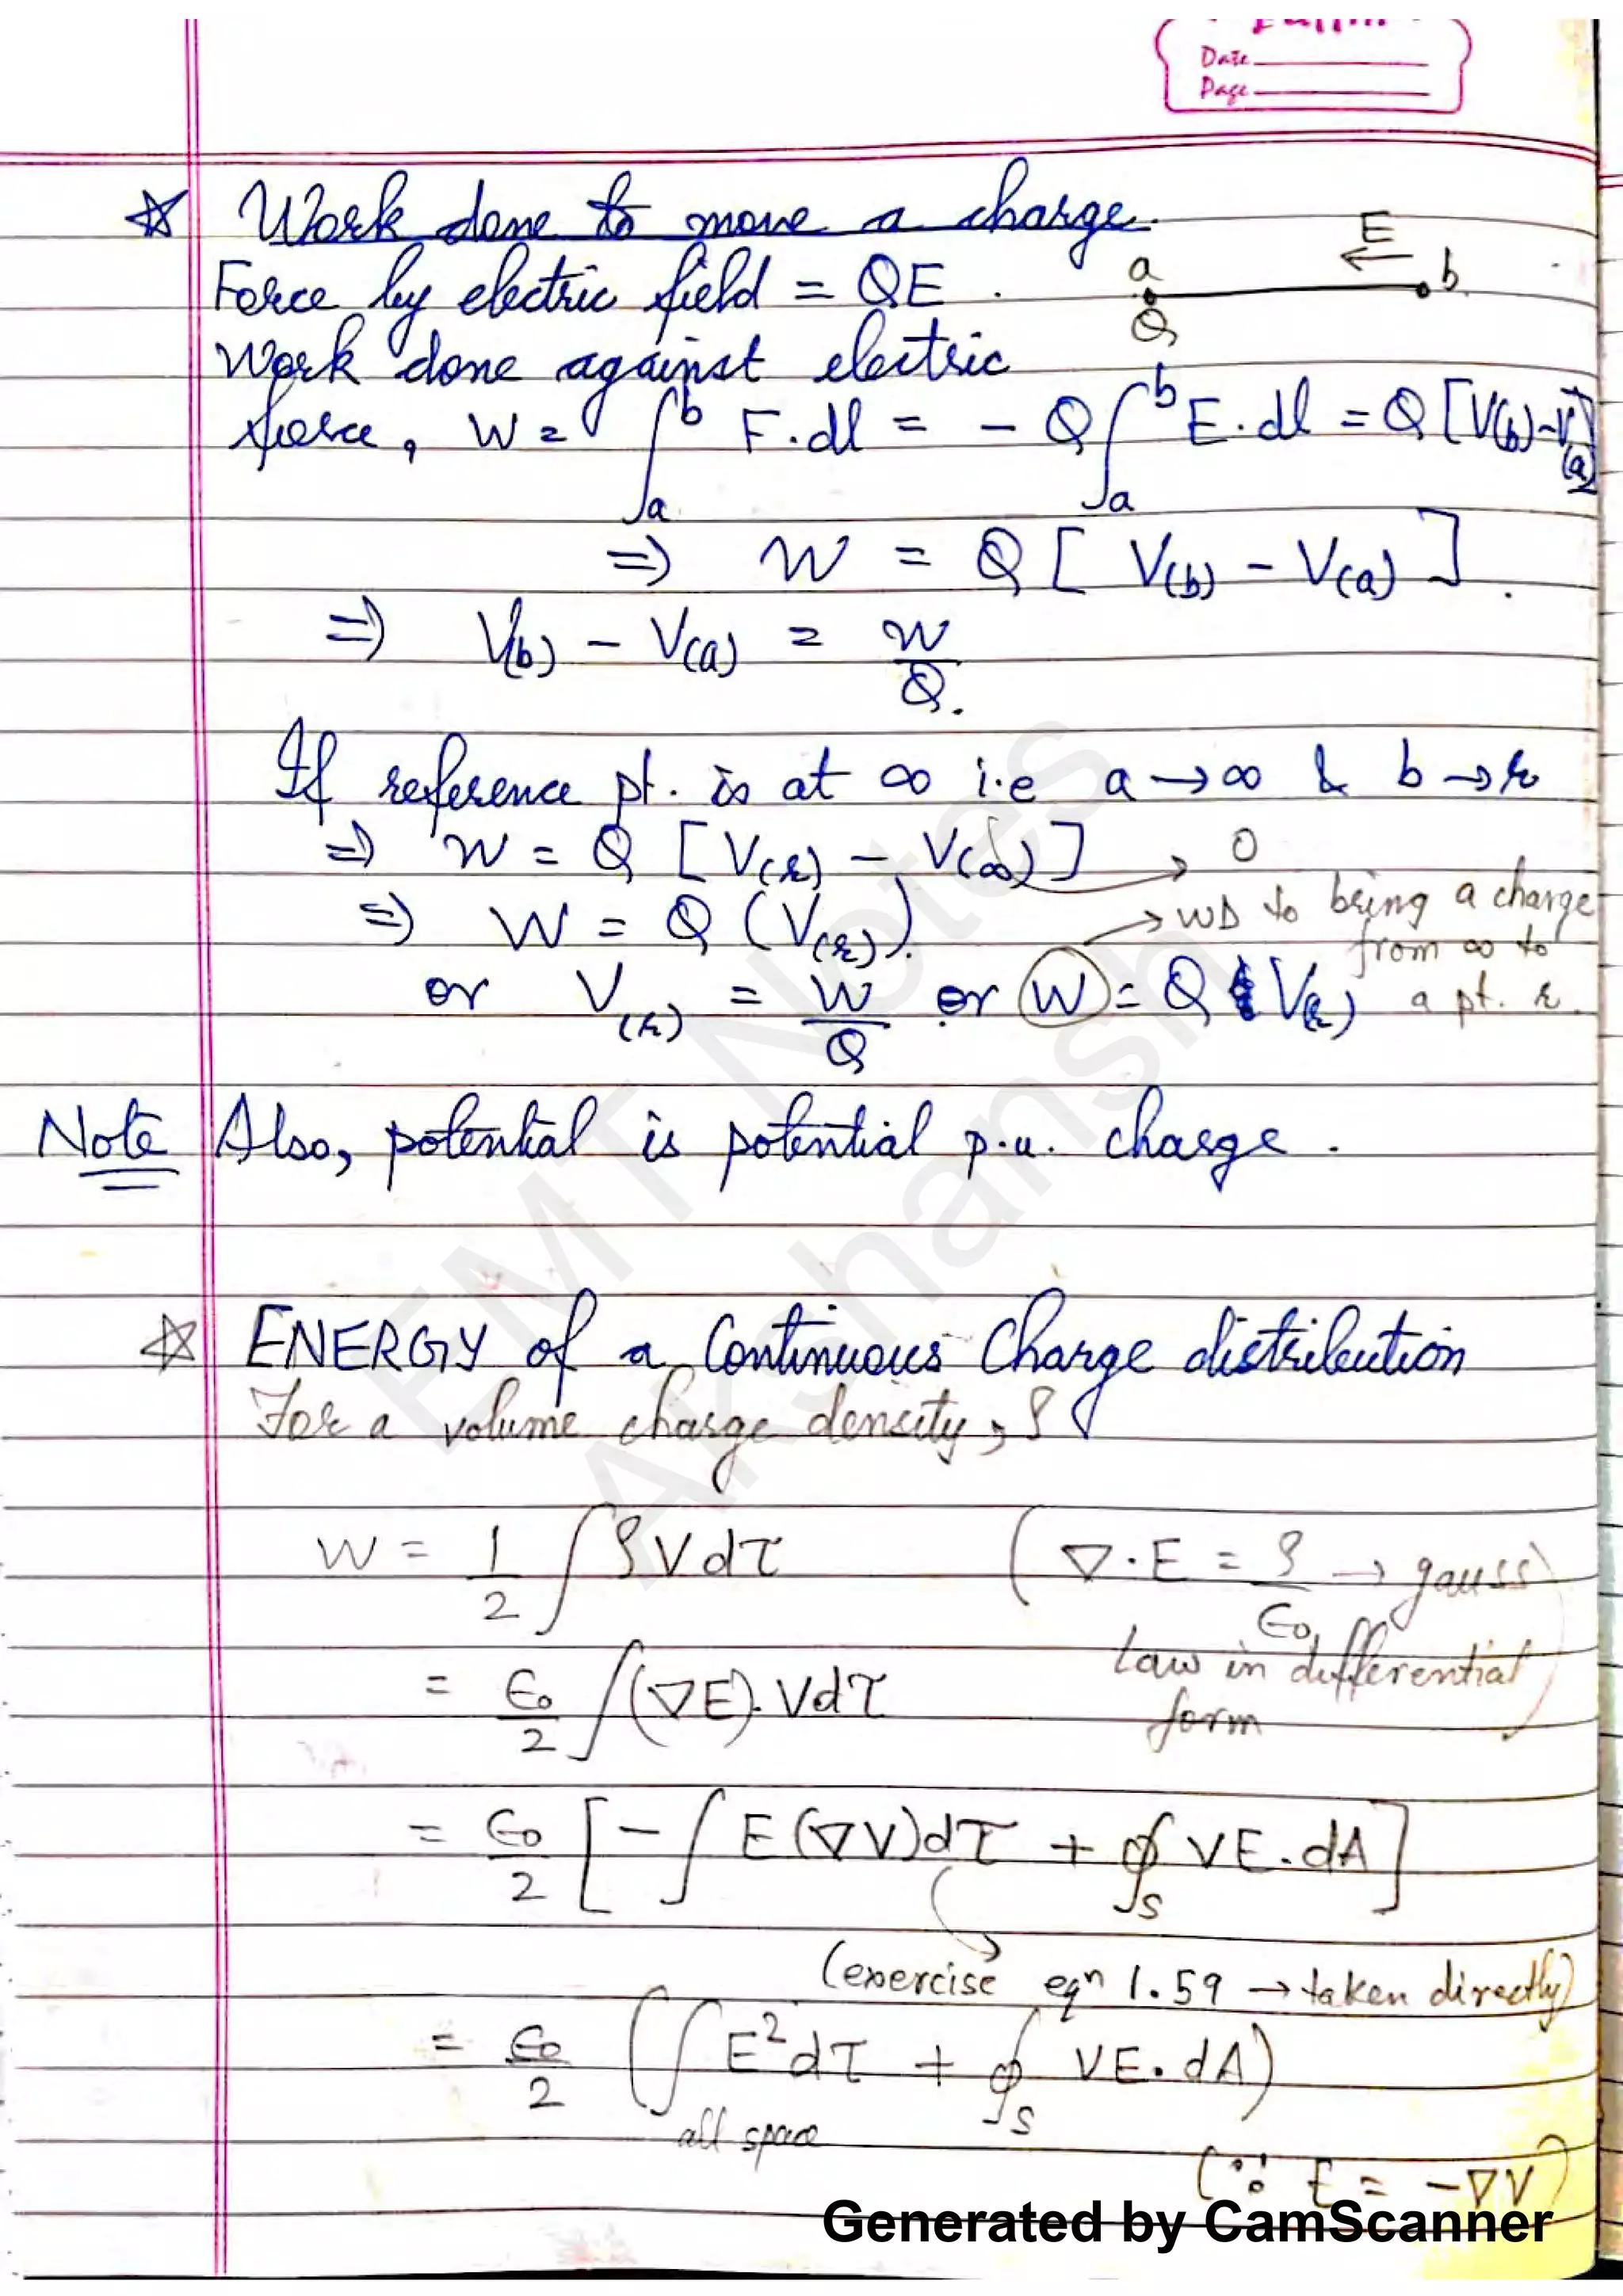 Date
Page
☆ Work done to move a charge.
E
←
a b
Q
Force by electric field = QE.
Work done against electric
force, W = ∫_a^b F.dl = - Q ∫_a^b E.dl = Q [V(b) - V(a)]
=) W = Q [ V(b) - V(a) ].
=) V(b) - V(a) = W/Q.
If reference pt. is at ∞ i.e a → ∞ & b → r
=) W = Q [V(r) - V(∞)] → 0
=) W = Q (V(r)).
or V(r) = W/Q or W = Q V(r)
→ WD to bring a charge
from ∞ to
a pt. r.
Note Also, potential is potential p.u. charge.
☆ ENERGY of a Continuous Charge distribution
For a volume charge density, ρ
W = 1/2 ∫ ρ V dτ (∇.E = ρ/ϵ0 → gauss
law in differential
form)
= ϵ0/2 ∫ (∇E). V dτ
= ϵ0/2 [ - ∫ E (∇V) dτ + ∮_S VE.dA ]
(exercise eqn 1.59 → taken directly)
= ϵ0/2 ( ∫ E² dτ + ∮_S VE.dA )
all space
(∵ E = -∇V)
EMT Notes
Akshansh
Generated by CamScanner